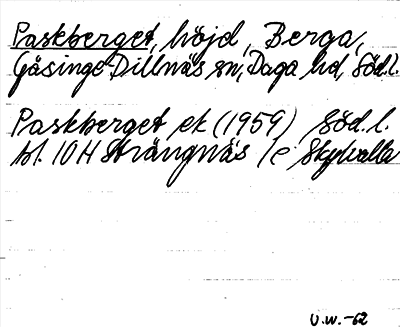 Paskberget, höjd, Berga,
Gåsinge-Dillnäs sn, Daga hd, Söd.l.
Paskberget ek (1959) Söd.l.
bl. 10 H Strängnäs /e Skyvalla
U.W.-62